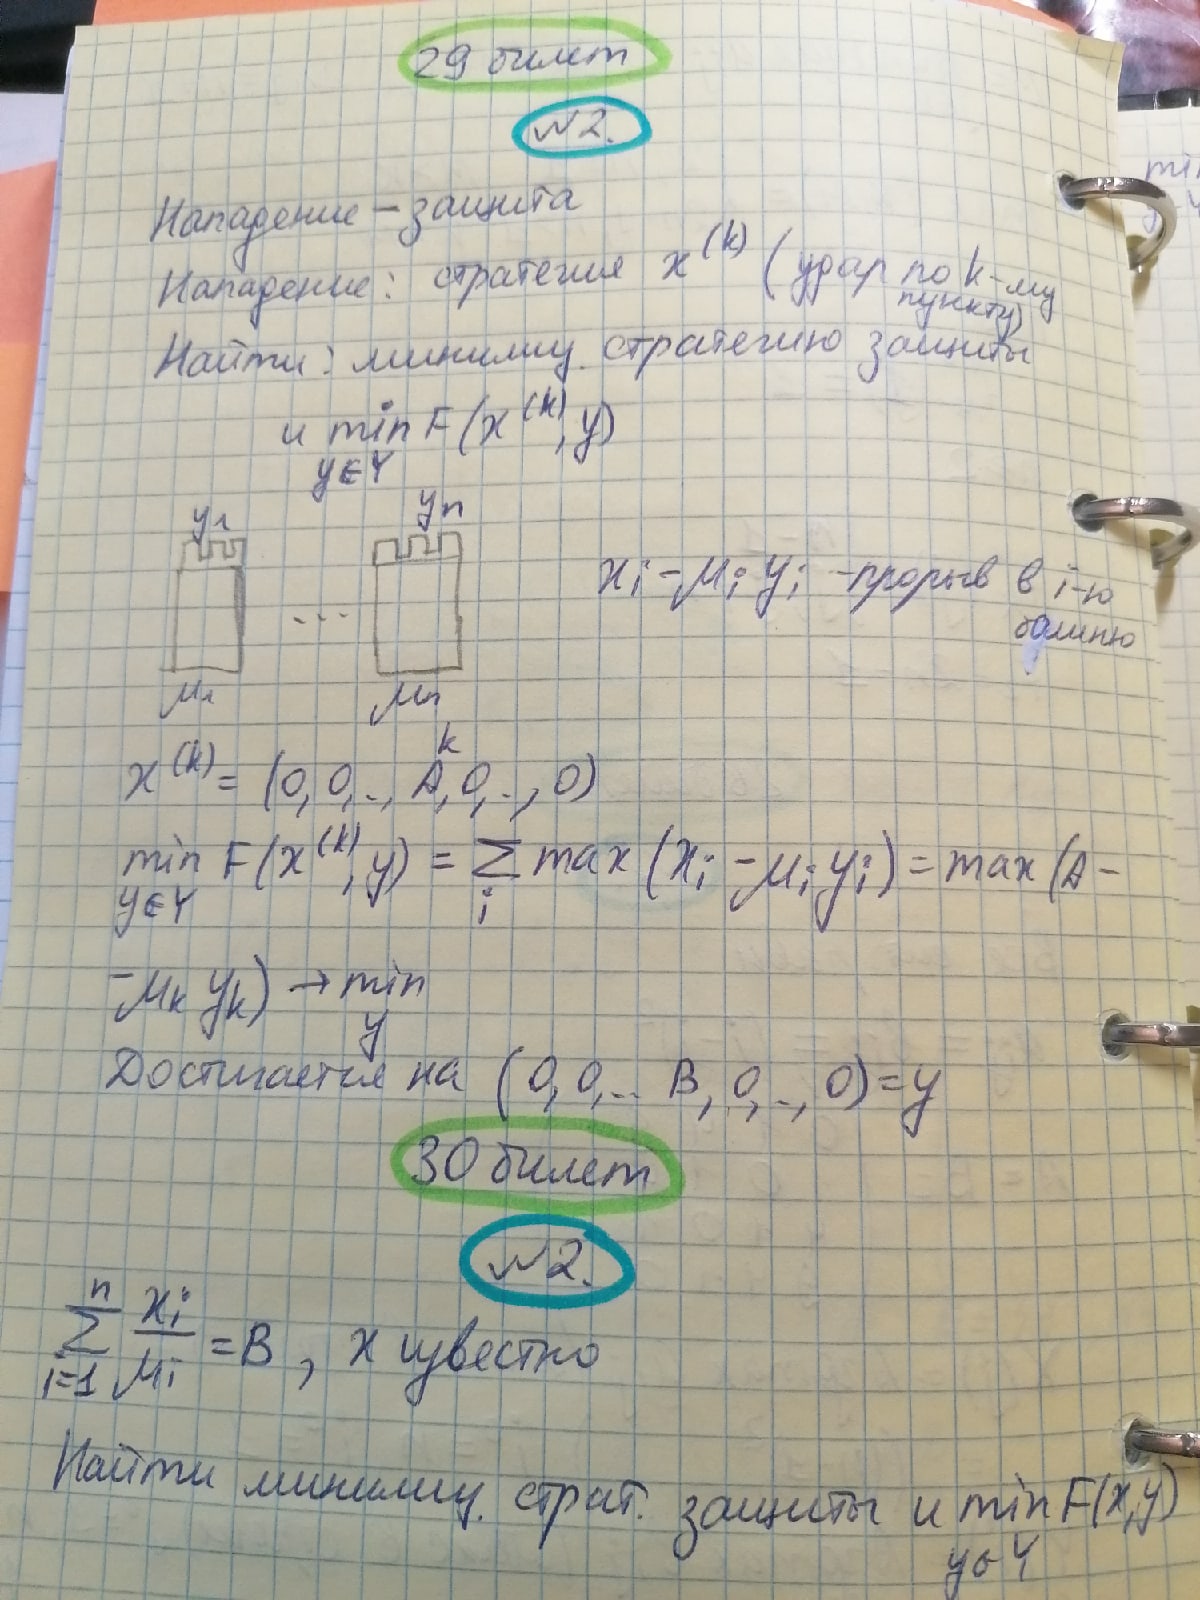 29 билет
№2.
Нападение – защита
Нападение: стратегия x^(k) (удар по k-му
пункту)
Найти: минимиз. стратегию защиты
и min F(x^(k), y)
y∈Y
y₁ yₙ
...
xᵢ – μᵢ yᵢ – прорыв в i-ю
башню
μ₁ μₙ
k
x^(k) = (0, 0, .., A, 0, .., 0)
min F(x^(k), y) = Σ max (xᵢ – μᵢ yᵢ) = max (A –
y∈Y i
– μₖ yₖ) → min
y
Достигается на (0, 0, ... B, 0, .., 0) = y
30 билет
№2.
n
Σ xᵢ/μᵢ = B, x известно
i=1
Найти минимиз. страт. защиты и min F(x, y)
y∈Y